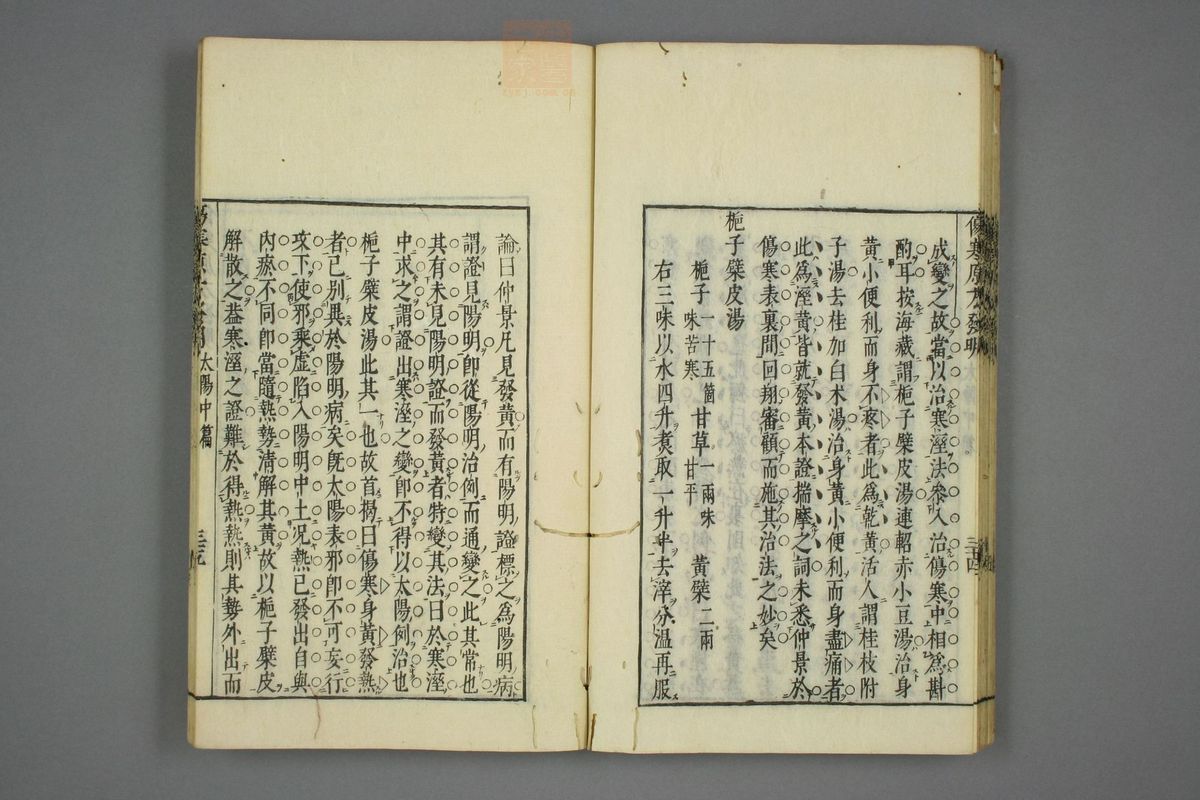 傷寒原方發明
成變之故當以治寒溼法叅入治傷寒中相爲斟
酌耳按海藏謂梔子檗皮湯連軺赤小豆湯治身
黃小便利而身不疼者此爲乾黃活人謂桂枝附
子湯去桂加白术湯治身黃小便利而身盡痛者
此爲溼黃皆就發黃本證揣摩之詞未悉仲景於
傷寒表裏間回翔審顧而施其治法之妙矣
梔子檗皮湯
梔子一十五箇味苦寒 甘草一兩味甘平 黃檗二兩
右三味以水四升煑取一升半去滓分溫再服
三十四
論曰仲景凡見發黃而有陽明證標之爲陽明病
謂證見陽明卽從陽明治例而通變之此其常也
其有未見陽明證而發黃者特變其法曰於寒溼
中求之謂證出寒溼之變卽不得以太陽例治也
梔子檗皮湯此其一也故首揭曰傷寒身黃發熱
者已別異於陽明病矣旣太陽表邪卽不可妄行
攻下使邪乘虛陷入陽明中土况熱已發出自與
內瘀不同卽當隨熱勢清解其黃故以梔子檗皮
解散之葢寒溼之證難於得熱熱則其勢外出而
太陽中篇
三十五